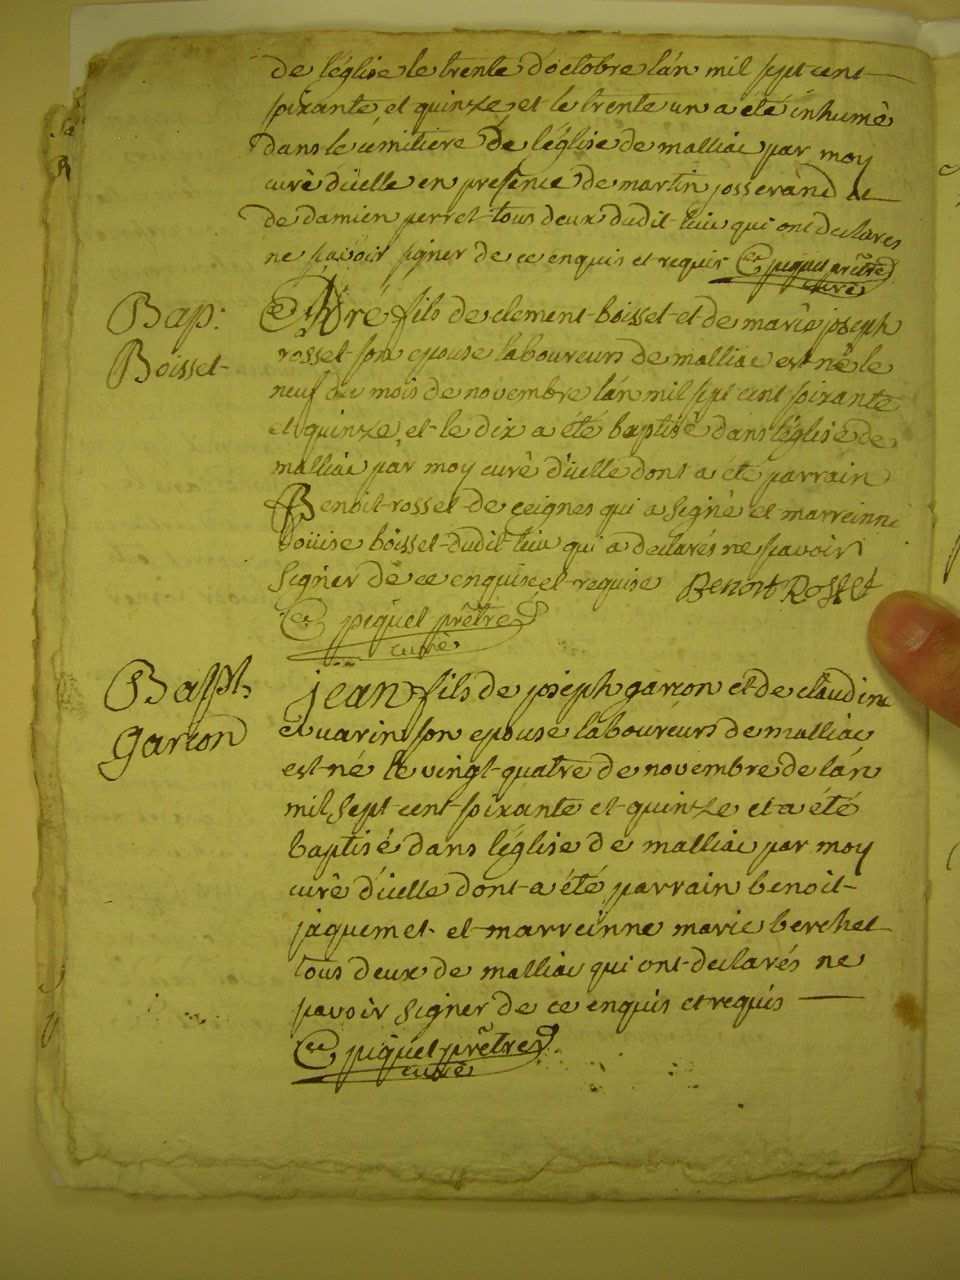 de léglise le trente d'octobre lán mil sept cent
soixante et quinze et le trente un a été inhumé
dans le cemitiere de léglise de malliac par moy
curè dicelle en presence de martin josserand et
de damien perret tous deux dudit lieu qui ont declarés
ne savoir signer de ce enquis et requis piquet prêtre
curè
Bap:
Boisset
fils de clement boisset et de marie joseph
rosset son epouse laboureurs de malliac est né le
neuf du mois de novembre lán mil sept cent soixante
et quinze, et le dix a été baptisé dans léglise de
malliac par moy curè dicelle dont a été parrain
Benoit rosset de ceignes qui a signé et marreinne
loüise boisset dudit lieu qui a declarés ne savoir
signer de ce enquise et requise Benoit Rosset
piquet prêtre
curè
Bapt.
garcon
jean fils de joseph garcon et de claudine
son epouse laboureurs de malliac
est né le vingt quatre de novembre de lán
mil sept cent soixante et quinze et a été
baptisé dans léglise de malliac par moy
curè dicelle dont a été parrain benoit
jaquemet et marreinne marie berchet
tous deux de malliac qui ont declarés ne
savoir signer de ce enquis et requis
piquet prêtre
curè